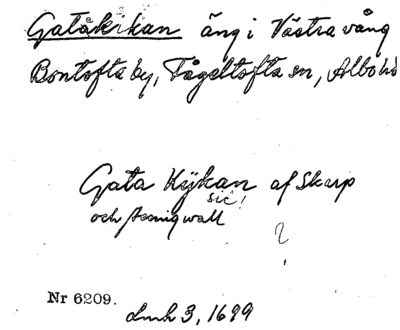 Gatåkikan äng i Västra vång
Bontofta by, Tågeltofta sn, Albo h
Gata Kÿkan af Skarp
sic!
och walk
?
Nr 6209.
dmh 3, 1699